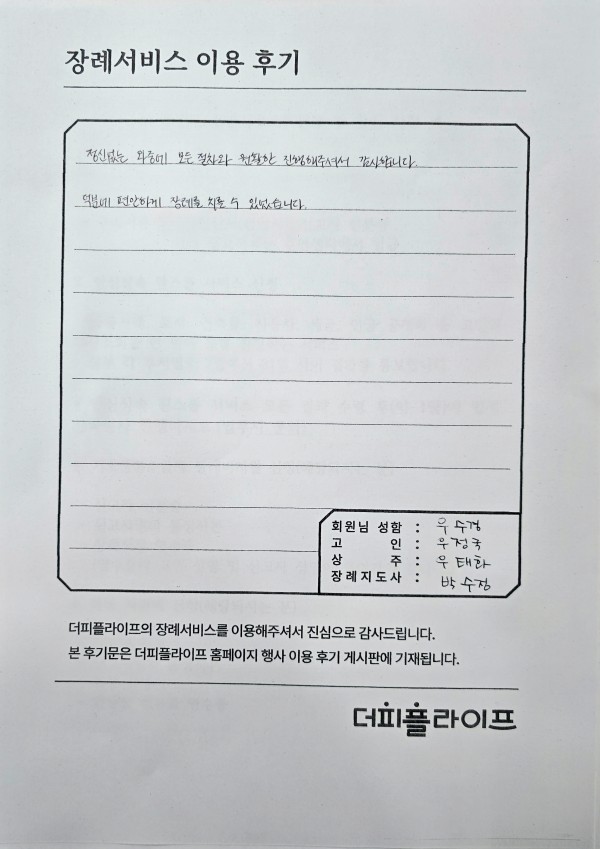 장례서비스 이용 후기
정신없는 와중에 모든 절차와 원활한 진행해주셔서 감사합니다.
덕분에 편안하게 장례를 치를 수 있었습니다.
회원님 성함 : 우수경
고 인 : 우정국
상 주 : 우태화
장례지도사 : 박수정
더피플라이프의 장례서비스를 이용해주셔서 진심으로 감사드립니다.
본 후기문은 더피플라이프 홈페이지 행사 이용 후기 게시판에 기재됩니다.
더피플라이프